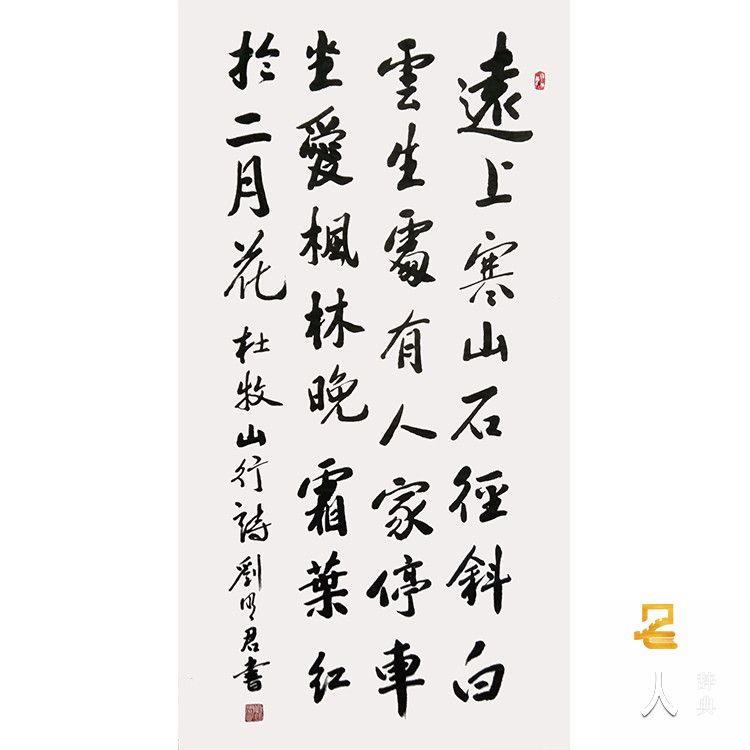 遠上寒山石徑斜白
雲生處有人家停車
坐愛楓林晚霜葉紅
於二月花 杜牧山行詩 劉明君書
人
辞典